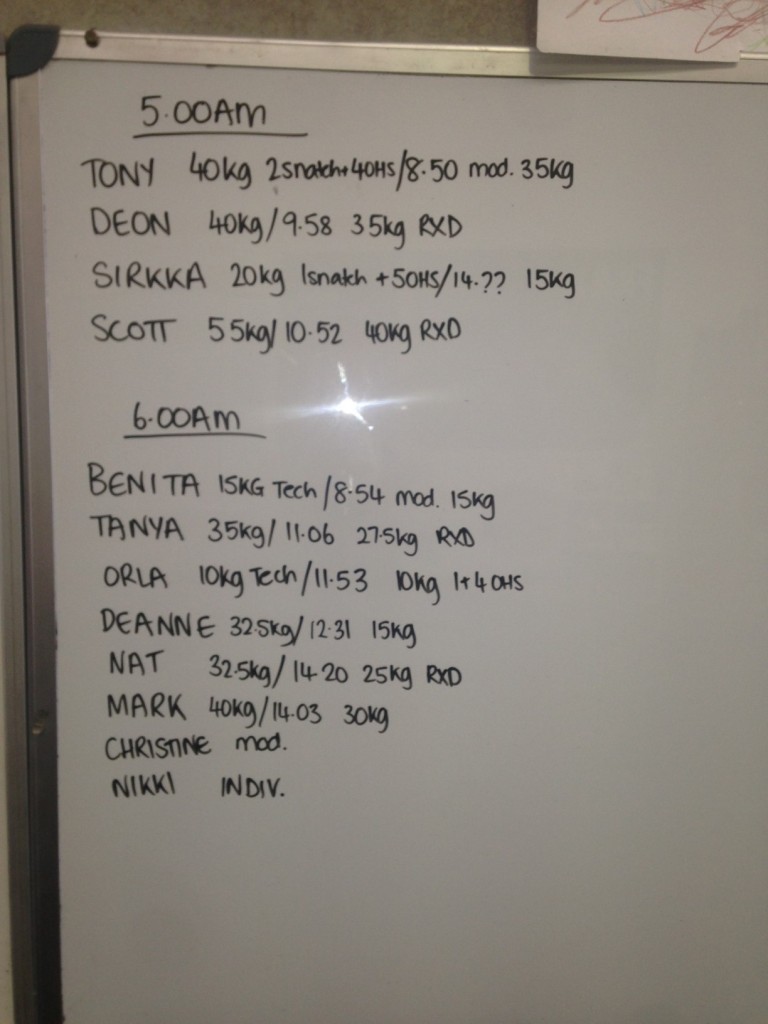 5.00AM
TONY 40kg 2snatch+4OHS/8.50 mod. 35kg
DEON 40kg/9.58 35kg RXD
SIRKKA 20kg 1snatch +5OHS/14.?? 15kg
SCOTT 55kg/10.52 40kg RXD
6.00AM
BENITA 15KG Tech/8.54 mod. 15kg
TANYA 35kg/11.06 27.5kg RXD
ORLA 10kg Tech/11.53 10kg 1+4OHS
DEANNE 32.5kg/12.31 15kg
NAT 32.5kg/14.20 25kg RXD
MARK 40kg/14.03 30kg
CHRISTINE mod.
NIKKI INDIV.